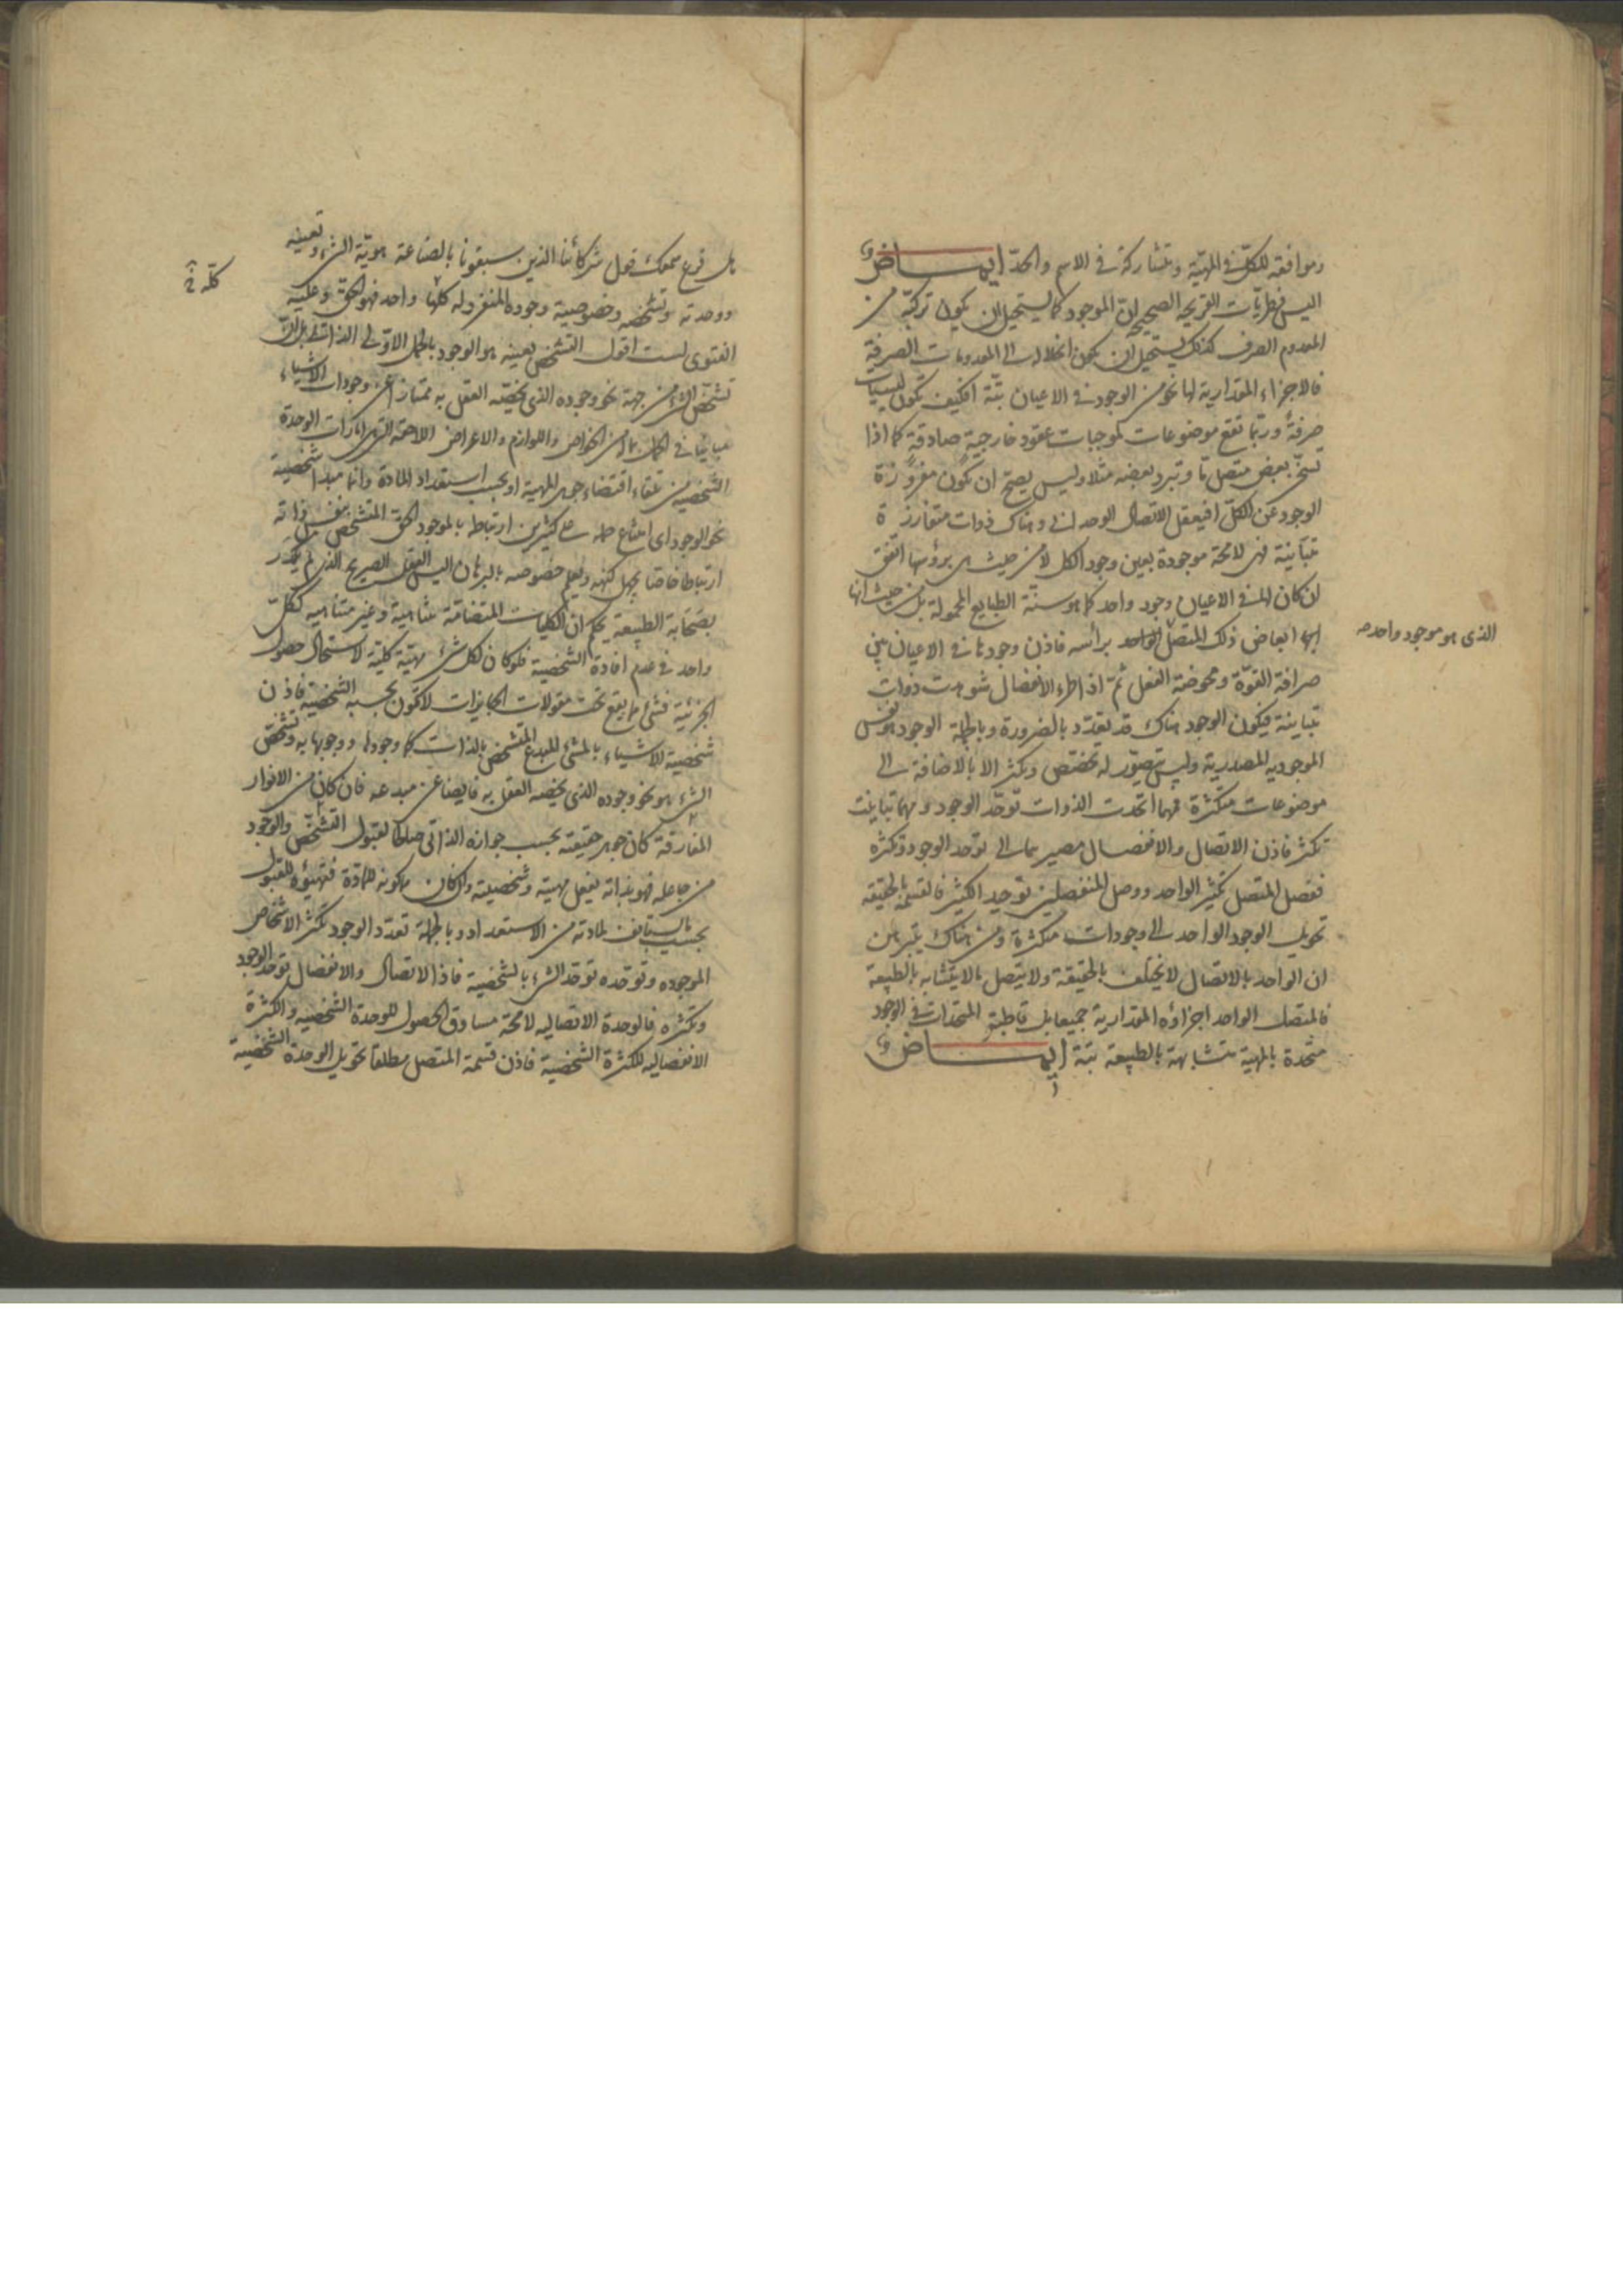 وموافقه للكل في المهية ومتشاركة في الاسم والحد ايماض
اليس من فطريات القريحه الصحيحه ان الموجود كما يستحيل ان يكون تركبه من
المعدوم الصرف كذلك يستحيل ان يكون انحلاله الى المعدومات الصرفة
فالاجزاء المقدارية لها نحو من الوجود في الاعيان بتة افكيف تكون ليسيات
صرفة وربما تقع موضوعات لموجبات عقود خارجية صادقة كما اذا
تسخن بعض متصل ما وتبرد بعضه مثلا وليس يصح ان تكون مفروزة
الوجود عن الكل افيعقل الاتصال الوحداني وهناك ذوات متفارزة
متباينة فهي لا محة موجودة بعين وجود الكل لا من حيث هي برؤسها اتفق
ان كان لها في الاعيان وجود واحد كما هو سنة الطبايع المحمولة بل من حيث انها
ابعاض ذلك المتصل الواحد برأسه فاذن وجودها في الاعيان بين
الذي هو موجود واحد صح
صرافة القوة ومحوضة الفعل ثم اذا طرء الانفصال شوهدت ذوات
متباينة فيكون الوجود هناك قد تعدد بالضرورة وبالجملة الوجود هو نفس
الموجوديه المصدرية وليس يتصور له تخصص وتكثر الا بالاضافة الى
موضوعات متكثرة فمهما اتحدت الذوات توحد الوجود ومهما تباينت
تكثر فاذن الاتصال والانفصال مصيرهما الى توحد الوجود وتكثره
ففصل المتصل تكثير الواحد ووصل المنفصلين توحيد الكثير فالقسمة بالحقيقه
تحويل الوجود الواحد الى وجودات متكثرة ومن هناك يتبرهن
ان الواحد بالاتصال لا يختلف بالحقيقة ولا يتصل ما لا يتشابه بالطبيعة
فالمتصل الواحد اجزاؤه المقدارية جميعا بل قاطبة المتحدات في الوجود
متحدة بالمهية متشابهة بالطبيعة بتة ايماض
هل قرع سمعك قول شركائنا الذين سبقونا بالصناعة هوية الشيء وتعينه
ووحدته وتشخصه وخصوصية وجوده المنفرد له كلها واحد فهو الحق وعليه
كله خ
الفتوى لست اقول التشخص بعينه هو الوجود بالحمل الاولى الذاتي بل ان
تشخص الشيء من جهة نحو وجوده الذي يخصه العقل به ممتازا عن وجودات الاشياء
مباينا في الكل بما هي من الخواص واللوازم والاعراض اللاحقة التي هي امارات الوحدة
الشخصية من تلقاء اقتضاء جوهر المهية او بحسب استعداد المادة وانما مبدأ شخصية
نحو الوجود اى امتناع حمله على كثيرين ارتباط بالموجود الحق المتشخص بنفس ذاته
ارتباطا خاصا يجهل كنهه ويعلم خصوصه بالبرهان اليس العقل الصريح الذي لم يكدر
بصحابة الطبيعة يحكم ان الكليات المتضامة متناهية وغير متناهيه ككل
واحد في عدم افادة الشخصية فلو كان لكل شيء مهية كلية لاستحال حصول
الجزئية فشيء مما يقع تحت مقولات الجايزات لا تكون بحسبه الشخصية فاذن
شخصية الاشياء بالمشيء المبدع المتشخص بالذات كما وجودها ووجوبها به وتشخص
الشيء هو نحو وجوده الذي يخصه العقل به فايضا عن مبدعه فان كان من الانوار
المفارقة كان جوهر حقيقته بحسب جوازه الذاتي صالحا لقبول التشخص والوجود
من جاعله فهو بذاته يفعل مهيته وشخصيته وان كان مرهونه للمادة فتهيؤه للقبول
بحسب ما يستانف لمادته من الاستعداد وبالجملة تعدد الوجود تكثر الاشخاص
الموجوده وتوحده توحد الشيء بالشخصية فاذا الاتصال والانفصال توحد الوجود
وتكثره فالوحدة الاتصاليه لا محة مساوق الحصول للوحدة الشخصيه والكثرة
الانفصاليه للكثرة الشخصية فاذن قسمة المتصل مطلقا تحويل الوحدة الشخصية